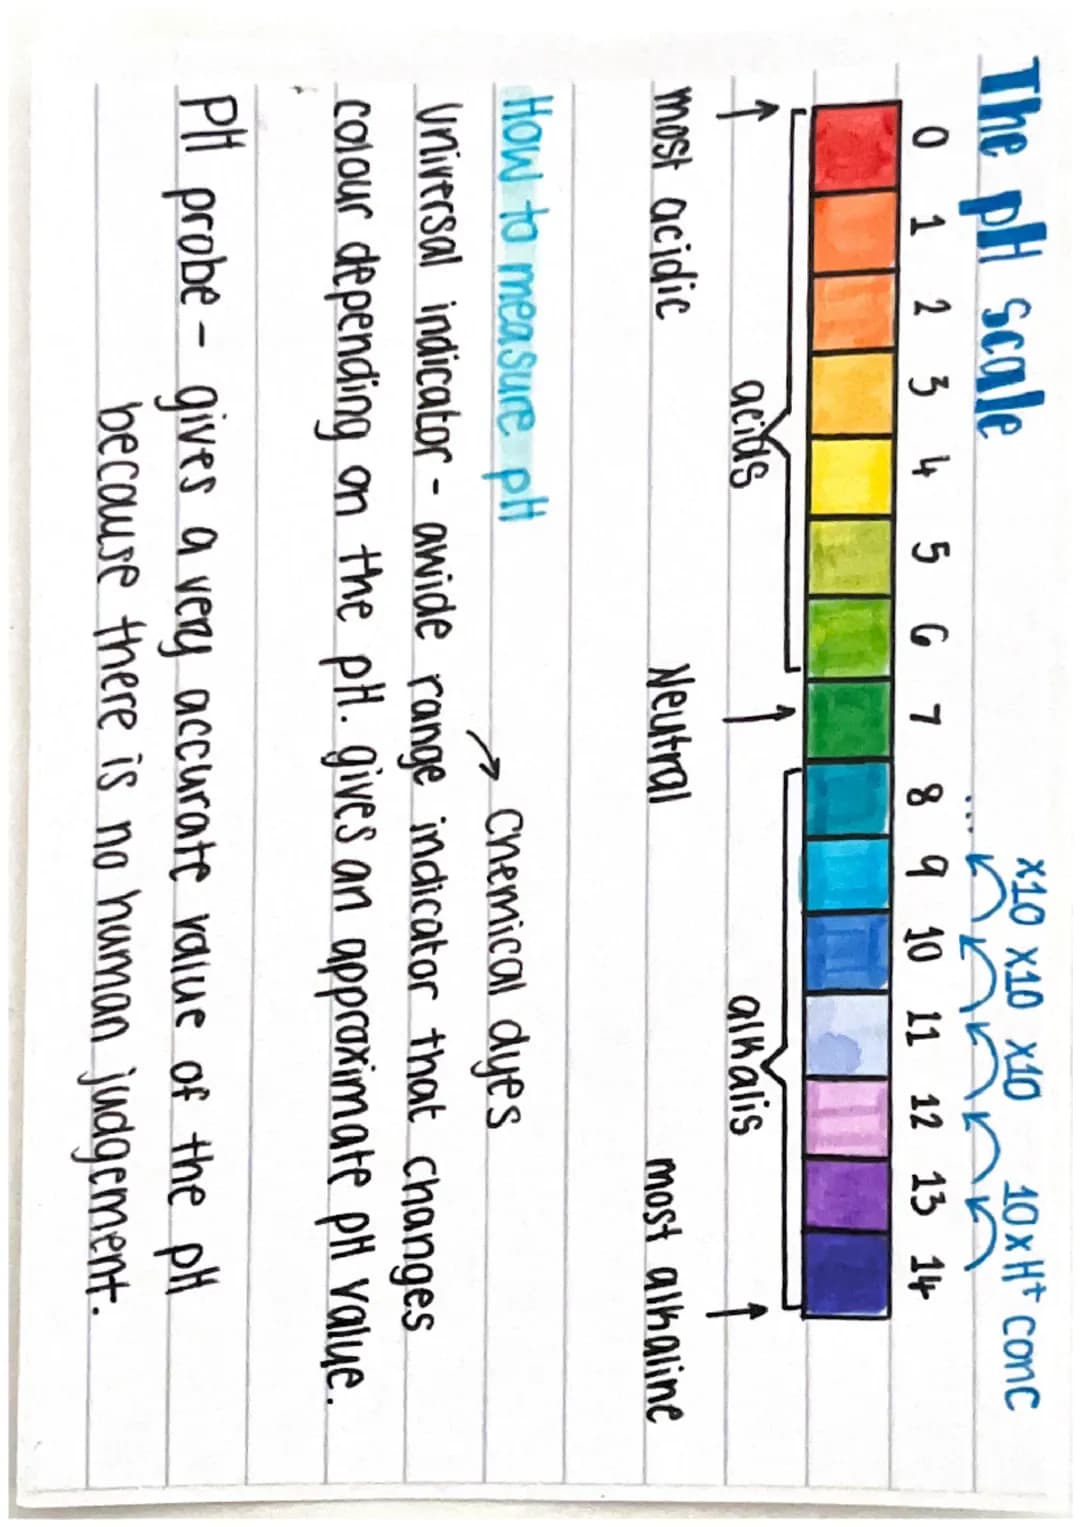 The pH scale
x10 x10 x10 10xH+ conc
...
0 1 2 3 4 5 6 7 8 9 10 11 12 13 14
acids alkalis
most acidic Neutral most alkaline
How to measure pH
→ Chemical dyes
Universal indicator - a wide range indicator that changes
colour depending on the pH. gives an approximate pH value.
PH probe - gives a very accurate value of the pH
because there is no human judgement.